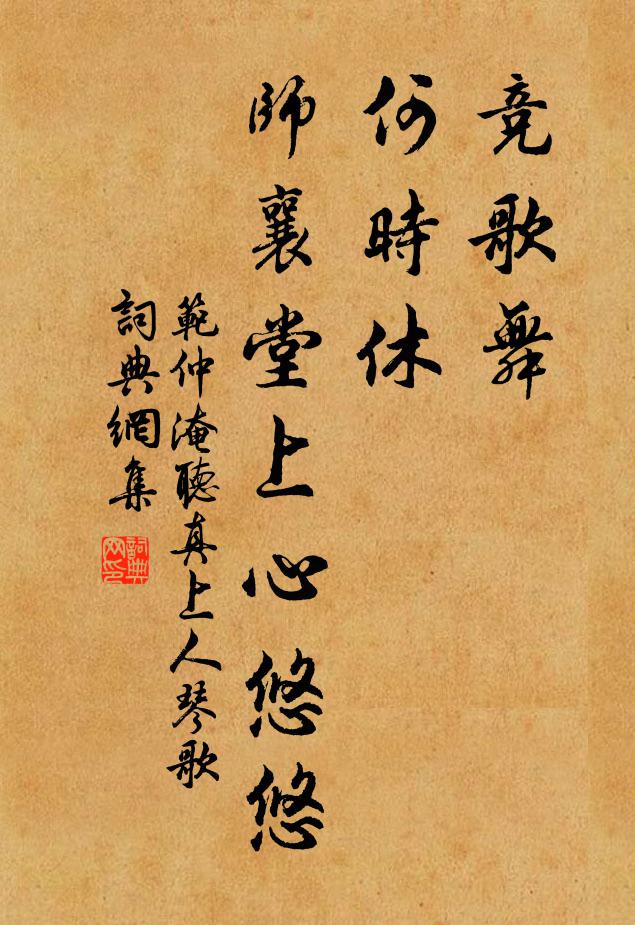 竞歌舞
何時休
師襄堂上心悠悠
範仲淹聽真上人琴歌
詞典網集
詞典网印